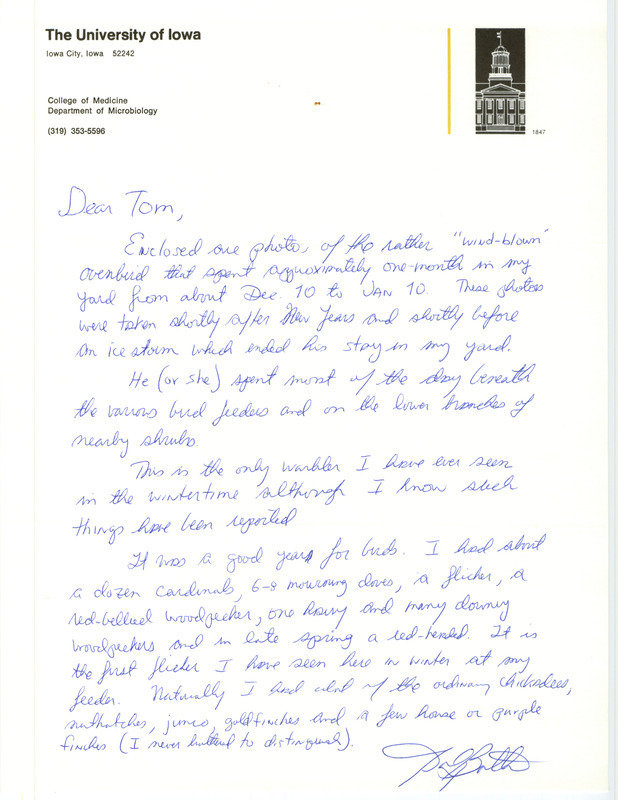 The University of Iowa
Iowa City, Iowa 52242
College of Medicine
Department of Microbiology
(319) 353-5596
1847
Dear Tom,
Enclosed are photos of the rather "wind-blown"
ovenbird that spent approximately one-month in my
yard from about Dec. 10 to JAN 10. These photos
were taken shortly after New Years and shortly before
an ice storm which ended his stay in my yard.
He (or she) spent most of the day beneath
the various bird feeders and on the lower branches of
nearby shrubs.
This is the only warbler I have ever seen
in the wintertime although I know such
things have been reported
It was a good year for birds. I had about
a dozen cardinals, 6-8 mourning doves, a flicker, a
red-bellied woodpecker, one hairy and many downy
woodpeckers and in late spring a red-headed. It is
the first flicker I have seen here in winter at my
feeder. Naturally I had all of the ordinary chickadees,
nuthatches, juncos, goldfinches and a few house or purple
finches (I never bothered to distinguish).